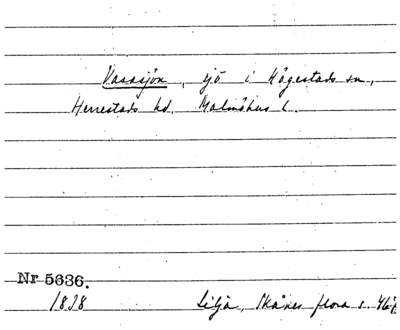 Vassjön, sjö i Högestads sn,
Herrestads hd. Malmöhus l.
Nr 5636.
1838 Lilja, Skånes flora s.